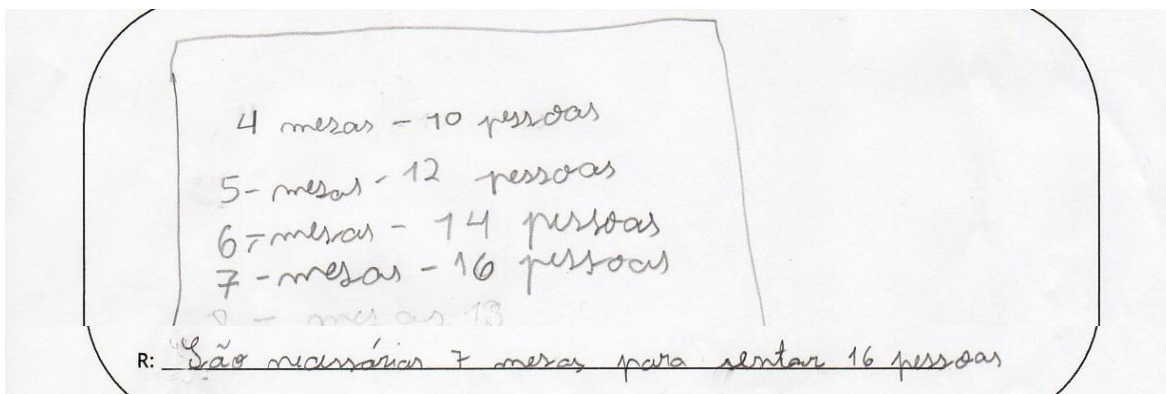 4 mesas - 10 pessoas
5 - mesas - 12 pessoas
6 - mesas - 14 pessoas
7 - mesas - 16 pessoas
8 - mesas 18
R: São necessárias 7 mesas para sentar 16 pessoas